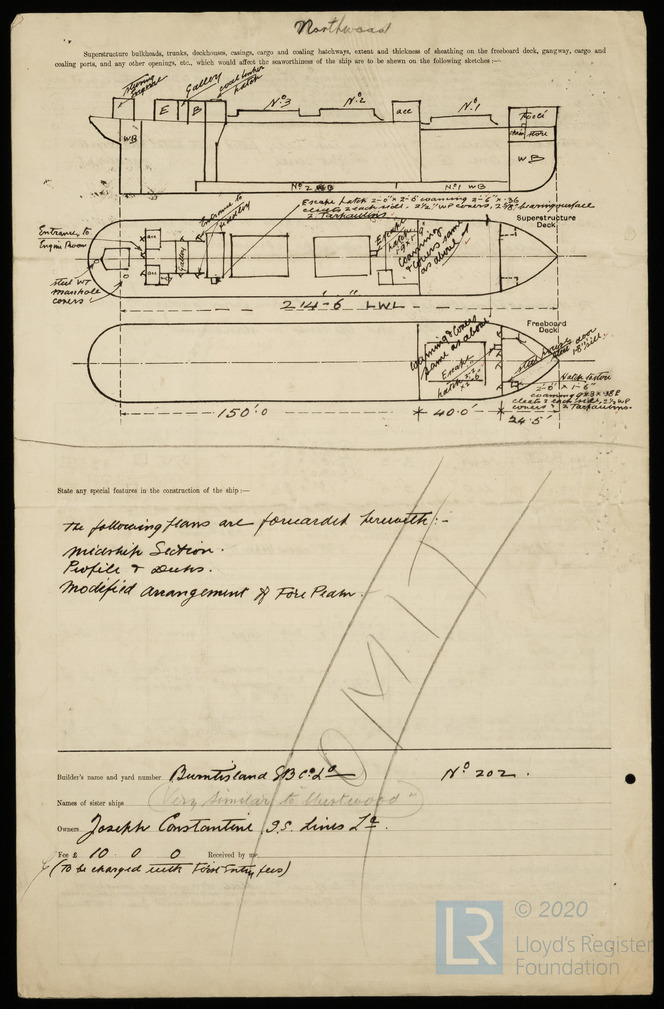 Northwood
Superstructure bulkheads, trunks, deckhouses, casings, cargo and coaling hatchways, extent and thickness of sheathing on the freeboard deck, gangway, cargo and
coaling ports, and any other openings, etc., which would affect the seaworthiness of the ship are to be shewn on the following sketches :—
Galley
hatch
E
B
Nº3
Nº2
acc
Nº1
store
WB
WB
Nº 2 WB
Nº1 WB
Escape hatch 2'-0" x 2'-6" coaming 2'-6" x .36
cleats 2 each side, 2½" WP covers, 2⅝" bearing surface
2 Tarpaulins
Superstructure
Deck
Entrance to
Entrance to
Engine Room
Galley
Escape
hatch
Coaming
& covers same
as above
steel WT
manhole
covers
214'-6" LWL
Freeboard
Deck
Coaming & covers
same as above
Escape
hatch
door
18" sill
Hatch to store
2'-0" x 1'-6"
coaming
cleats 2 each side, 2½ WP
covers 2 Tarpaulins
150'.0
40.0'
24.5'
State any special features in the construction of the ship :—
The following plans are forwarded herewith :-
Midship Section.
Profile & Decks.
Modified arrangement of Fore Peak.
OMIT
Builder's name and yard number Burntisland SB Co Ld Nº 202.
Names of sister ships (Very similar to "Yewtwood")
Owners Joseph Constantine S.S. Lines Ld.
Fee £ 10 . 0 . 0 Received by me
(To be charged with First Entry fees)
LR
© 2020
Lloyd's Register
Foundation